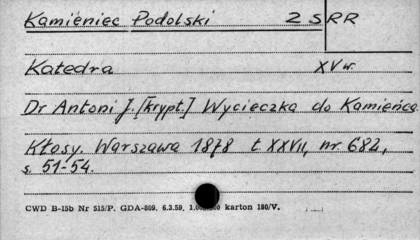 Kamieniec Podolski ZSRR
Katedra XV w.
Dr Antoni J. [krypt.] Wycieczka do Kamieńca.
Kłosy. Warszawa 1878 t. XXVII, nr. 682,
s. 51-54.
CWD B-15b Nr 515/P. GDA-809. 6.3.59. karton 180/V.